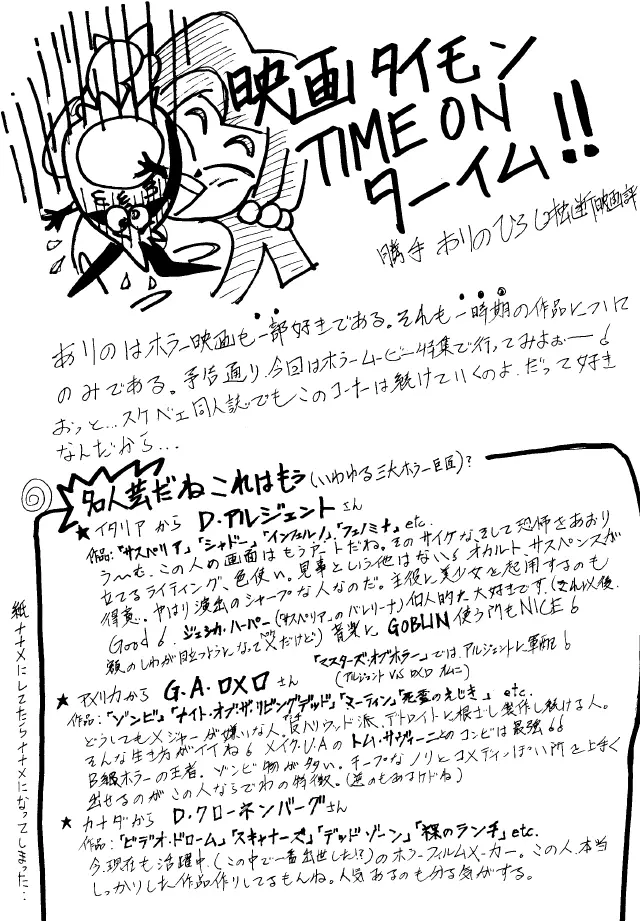 映画タイモン
TIME ON
ターイム!!
勝手 ありのひろし 独断映画評
ありのはホラー映画も一部好きである。それも一時期の作品について
のみである。予告通り、今回はホラームービー特集で行ってみよおー!
おっと…スケベェ同人誌でもこのコーナーは続けていくのよ。だって好き
なんだから…
名人芸だねこれはもう(いわゆる三大ホラー巨匠)?
★イタリアから D・アルジェントさん
作品:「サスペリア」「シャドー」「インフェルノ」「フェノミナ」etc.
う〜む、この人の画面はもうアートだね。そのサイケな、そして恐怖をあおり
立てるライティング、色使い。見事という他はない!オカルト、サスペンスが
得意。やはり演出のシャープな人なのだ。主役に美少女を起用するのも
Good! ジェシカ・ハーパー(「サスペリア」のバレリーナ)個人的に大好きです。(それ以後、
額のしわが目立つようになってだけど)音楽に GOBLIN 使う所も NICE!
「マスターズ・オブ・ホラー」では、アルジェントに軍配!
(アルジェント VS ロメロ オムニ)
★アメリカから G.A.ロメロさん
作品:「ゾンビ」「ナイト・オブ・ザ・リビングデッド」「マーティン」「死霊のえじき」etc.
どうしてもメジャーが嫌いな人。反ハリウッド派、デトロイトに根ざし製作し続ける人。
そんな生き方がイイね!メイク・U.Aのトム・サヴィーニとのコンビは最強!!
B級ホラーの王者。ゾンビ物が多い。チープなノリとコメディっぽい所を上手く
出せるのがこの人ならでわの特徴。(逆のもあるけどね)
★カナダから D.クローネンバーグさん
作品:「ビデオ・ドローム」「スキャナーズ」「デッドゾーン」「裸のランチ」etc.
今現在も活躍中。(この中で一番出世した!?)のホラーフィルムメーカー。この人、本当
しっかりした作品作りしてるもんね。人気あるのも分る気がする。
紙ナナメにしてたらナナメになってしまった…